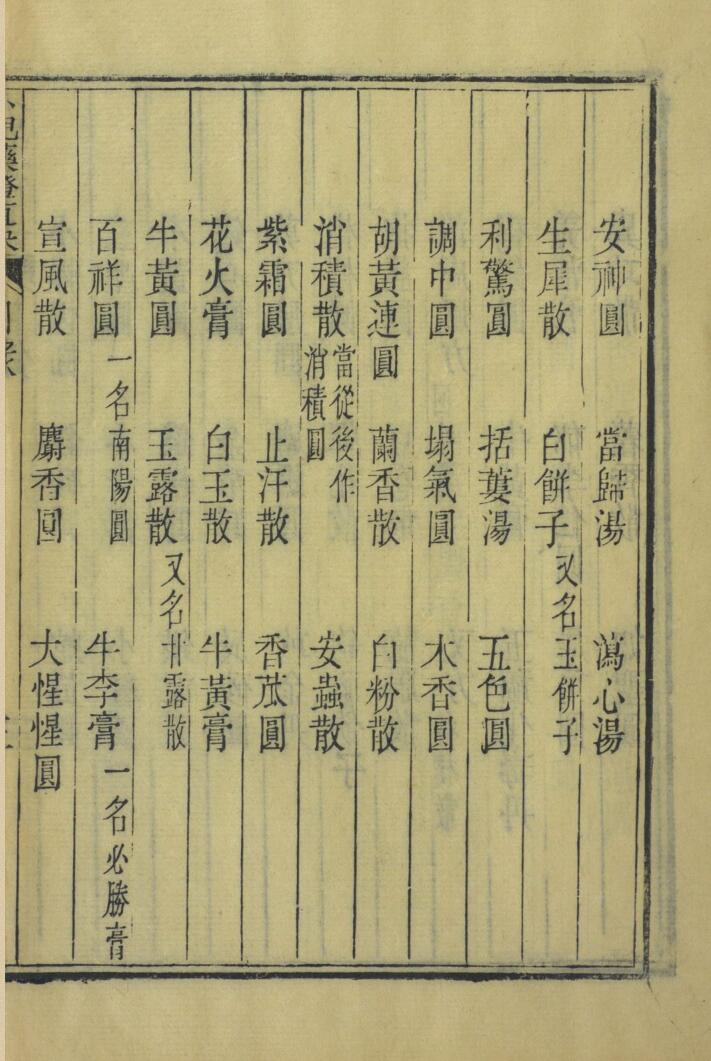 安神圓 當歸湯 瀉心湯
生犀散 白餅子又名玉餅子
利驚圓 括蔞湯 五色圓
調中圓 塌氣圓 木香圓
胡黃連圓 蘭香散 白粉散
消積散當從後作消積圓 安蟲散
紫霜圓 止汗散 香苽圓
花火膏 白玉散 牛黃膏
牛黃圓 玉露散又名甘露散
百祥圓一名南陽圓 牛李膏一名必勝膏
宣風散 麝香圓 大惺惺圓